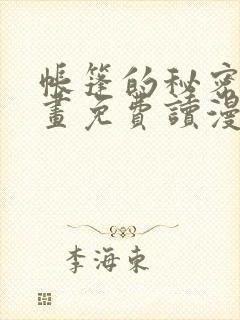 帳篷的秘密
畫免費讀漫
李海東